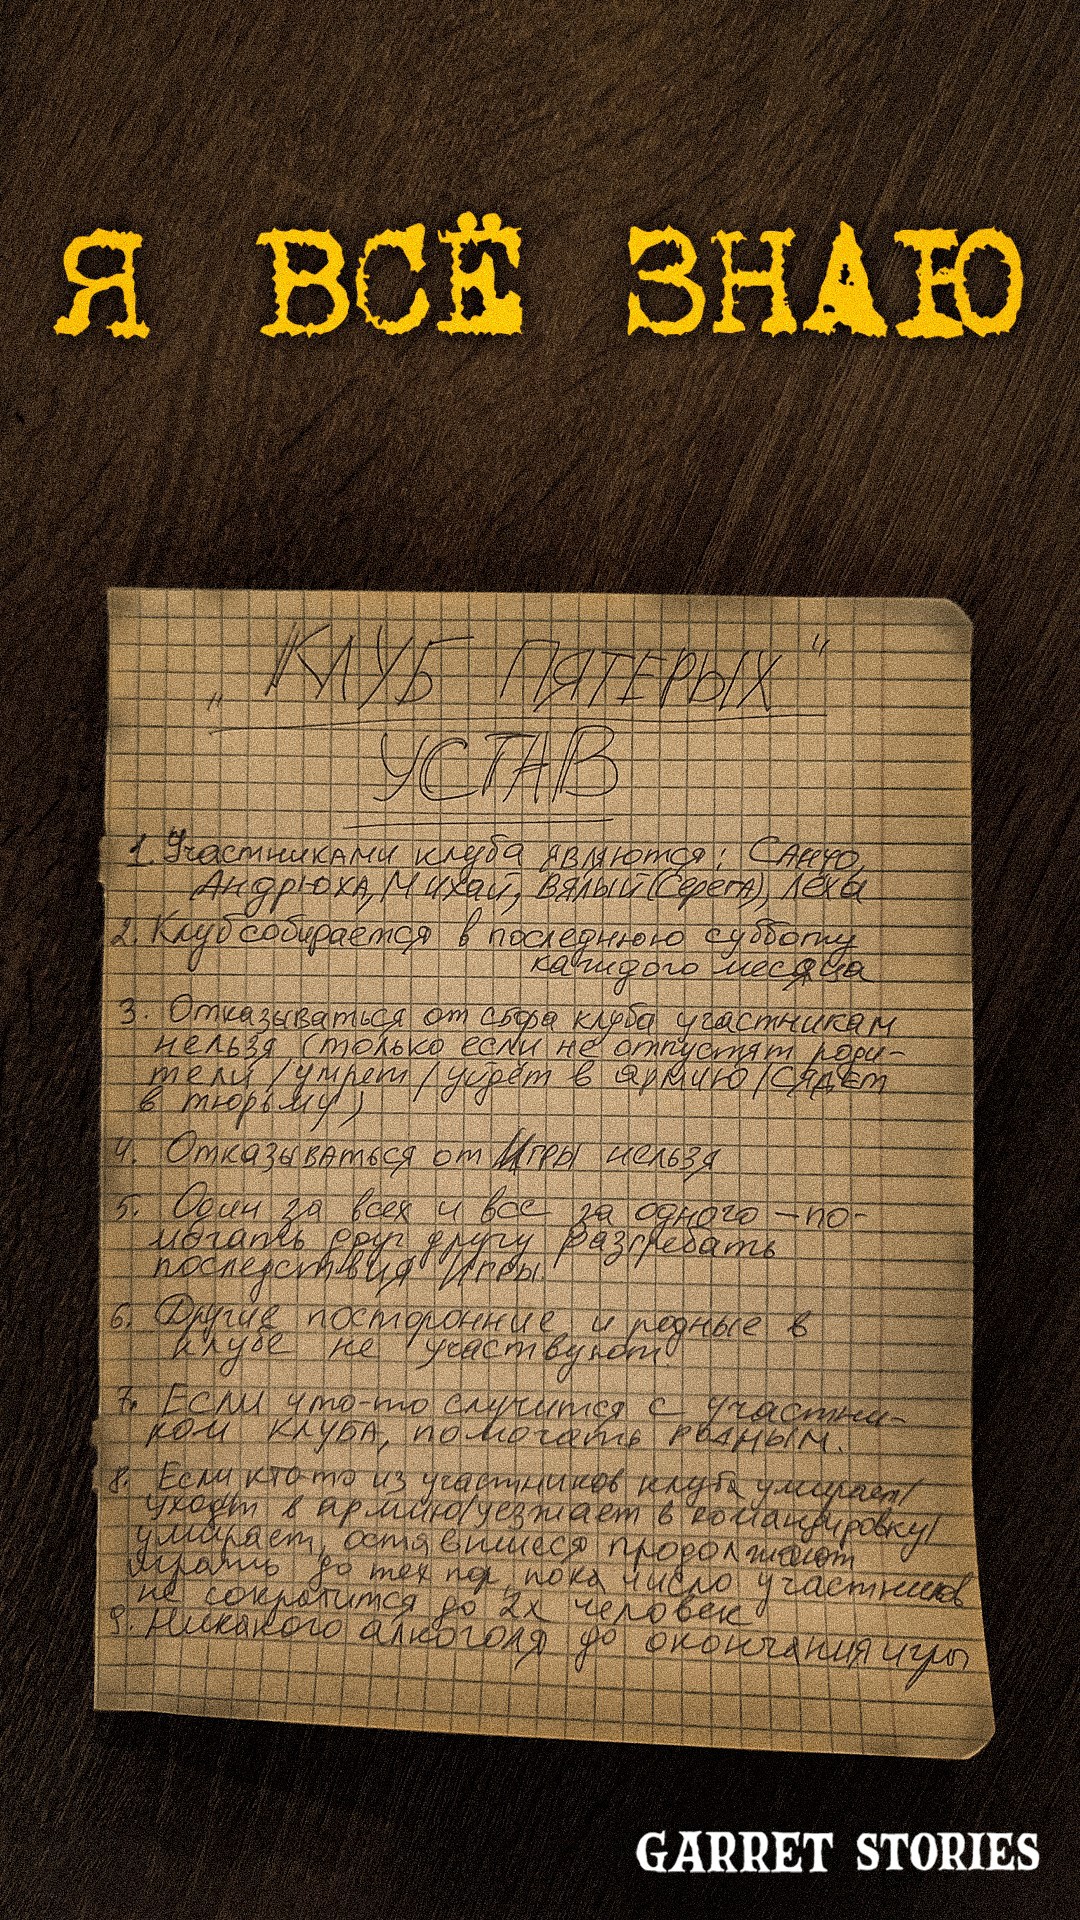 Я ВСЁ ЗНАЮ
„КЛУБ ПЯТЕРЫХ“
УСТАВ
1. Участниками клуба являются: Санчо,
Андрюха, Михай, Вялый (Серега), Лёха
2. Клуб собирается в последнюю субботу
каждого месяца
3. Отказываться от сбора клуба участникам
нельзя (только если не отпустят роди-
тели/умрет/уйдёт в армию/сядет
в тюрьму)
4. Отказываться от Игры нельзя
5. Один за всех и все за одного — по-
могать друг другу разгребать
последствия Игры
6. Другие посторонние и родные в
клубе не участвуют.
7. Если что-то случится с участни-
ком клуба, помогать родным.
8. Если кто-то из участников клуба умирает/
уходит в армию/уезжает в командировку/
умирает, оставшиеся продолжают
играть до тех пор, пока число участников
не сократится до 2х человек
9. Никакого алкоголя до окончания игры
GARRET STORIES